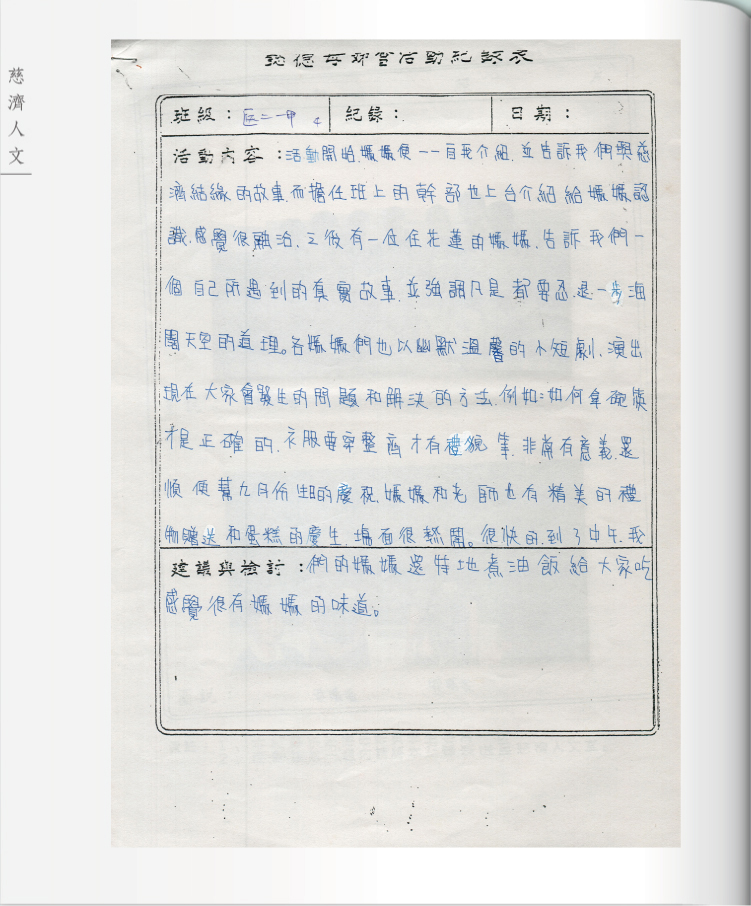 慈濟人文
懿德母姊會活動紀錄表
班級：醫二一甲 紀錄： 日期：
活動內容：活動開始媽媽便一一自我介紹，並告訴我們與慈
濟結緣的故事，而擔任班上的幹部也上台介紹給媽媽認
識，感覺很融洽，之後有一位住花蓮的媽媽，告訴我們一
個自己所遇到的真實故事，並強調凡是都要忍，退一步海
闊天空的道理。各媽媽們也以幽默溫馨的小短劇，演出
現在大家會發生的問題和解決的方法，例如：如何拿碗筷
才是正確的，衣服要穿整齊才有禮貌等，非常有意義，還
順便幫九月份生日的慶祝，媽媽和老師也有精美的禮
物贈送和蛋糕的慶生，場面很熱鬧。很快的，到了中午，我
建議與檢討：們的媽媽還特地煮油飯給大家吃
感覺很有媽媽的味道。